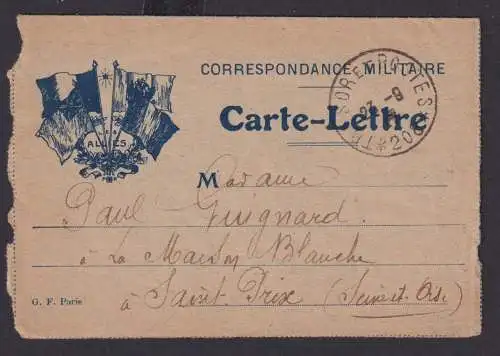 CORRESPONDANCE MILITAIRE
Carte-Lettre
TRESOR ET POSTES
23 - 9
* 206 *
ALLIÉS
Madame
Paul Guignard
à La Maison Blanche
à Saint Prix (Seine et Oise)
G. F. Paris